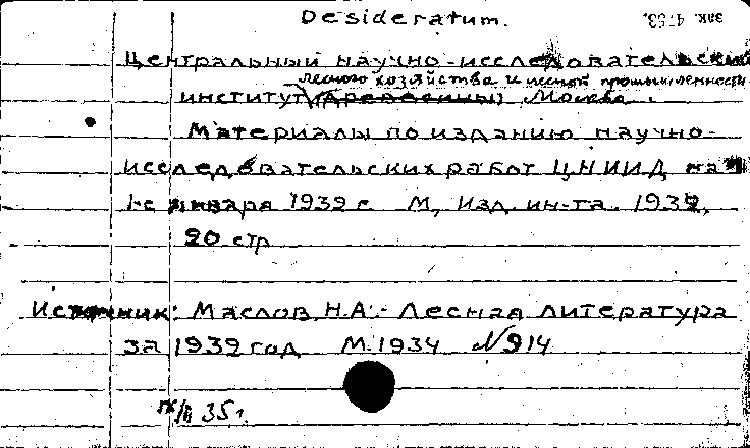 Desideratum.
зак. 4763.
Центральный научно-исследовательский
лесного хозяйства и лесной промышленности
институт (древесины) Москва.
Материалы по изданию научно-
исследовательских работ ЦНИИД на
1-е января 1932 г. М, Изд. ин-та. 1932,
20 стр
Источник: Маслов, Н.А.- Лесная литература
за 1932 год М. 1934 №914
35 г.